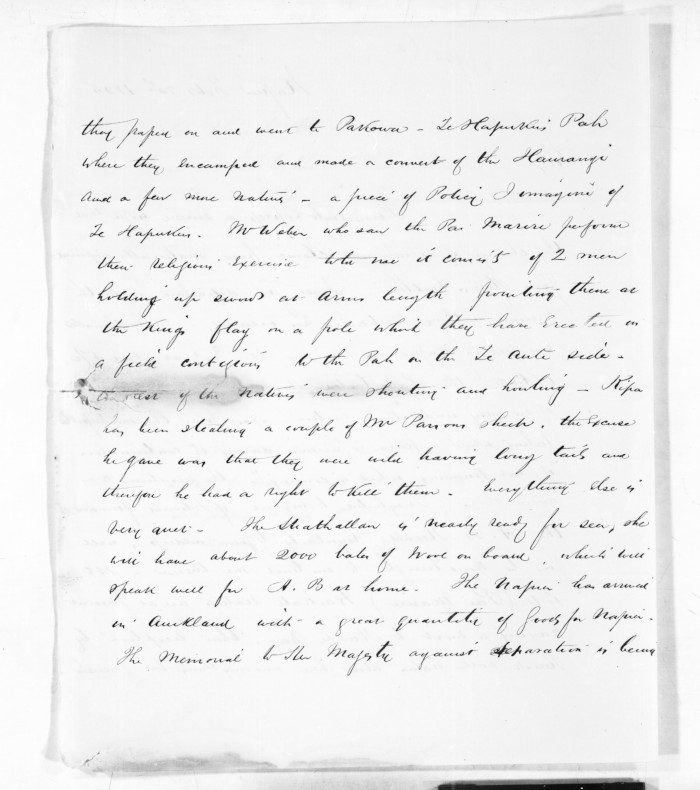 they passed on and went to Pakowai - Te Hapuku's Pah
where they encamped and made a convert of Te Haurangi
and a few more natives - a piece of Policy I imagine of
Te Hapuku. Mr Weber who saw the Pai Marire perform
their religious exercise tells me it consists of 2 men
holding up swords at arms length pointing them at
the Kings flag on a pole which they have erected in
a field contigious to the Pah on the Te Aute side -
the rest of the natives were shouting and howling - Nepe
has been stealing a couple of Mr Parsons sheep, the Excuse
he gave was that they were wild having long tails and
therefore he had a right to kill them. Everything else is
very quiet - The Strathallan is nearly ready for sea, she
will have about 2000 bales of Wool on board, which will
speak well for H. B at home. The Napier has arrived
in Auckland with a great quantity of Goods for Napier.
The Memorial to Her Majesty against separation is being